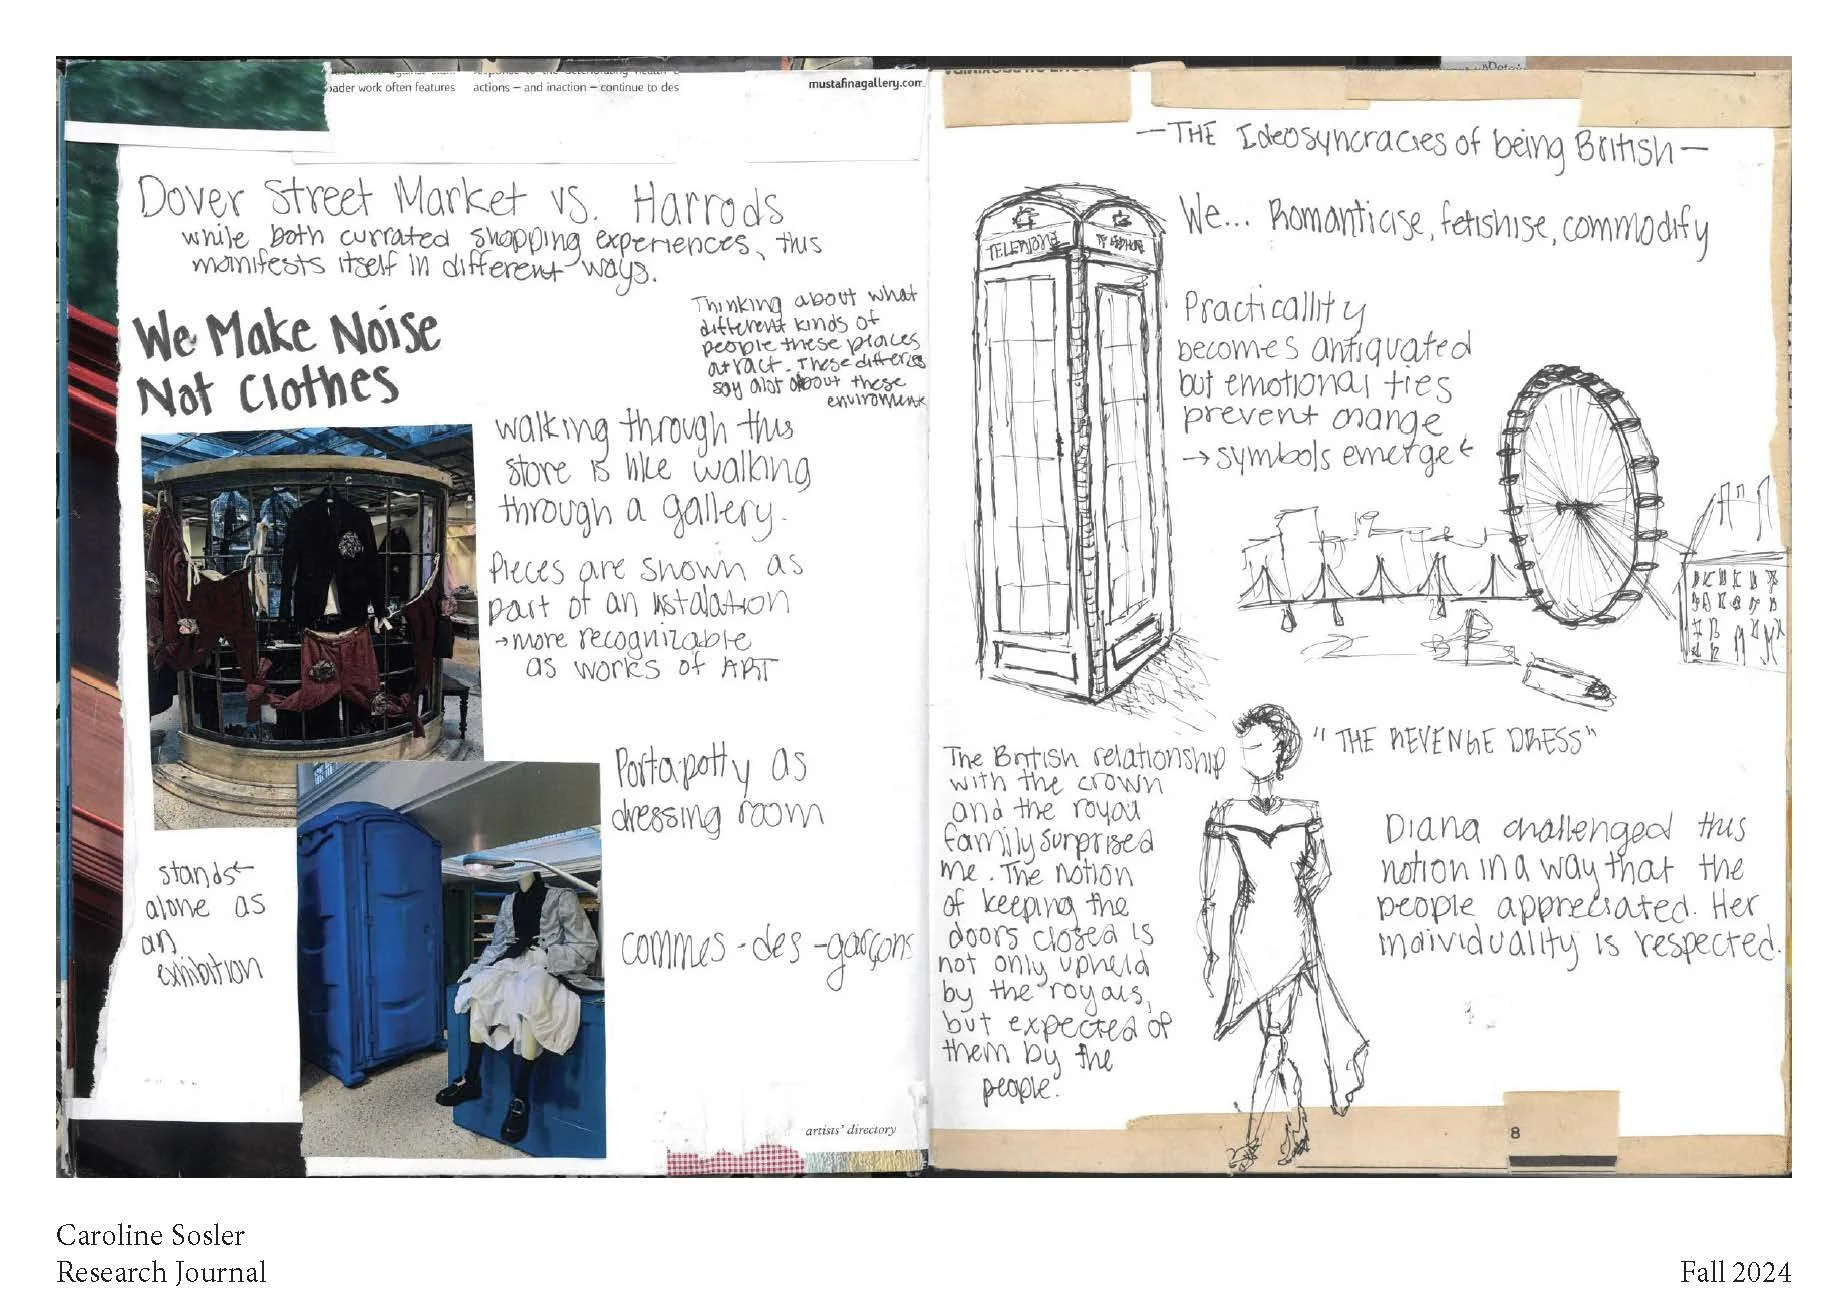 oader work often features
actions – and inaction – continue to des
mustafinagallery.com
Dover Street Market vs. Harrods
while both currated shopping experiences, this
manifests itself in different ways.
Thinking about what
different kinds of
people these places
attract. These differences
say alot about these
enviroment
We Make Noise
Not Clothes
walking through this
store is like walking
through a gallery.
Pieces are shown as
part of an instalation
→more recognizable
as works of ART
Portapotty as
dressing room
stands←
alone as
an
exhibition
commes-des-garçons
artists' directory
—THE Ideosyncracies of being British—
We... Romanticise, fetishise, commodify
TELEPHONE
TELEPHONE
Practicallity
becomes antiquated
but emotional ties
prevent change
→symbols emerge←
"THE REVENGE DRESS"
The British relationship
with the crown
and the royal
family surprised
me. The notion
of keeping the
doors closed is
not only upheld
by the royals,
but expected of
them by the
people.
Diana challenged this
notion in a way that the
people appreciated. Her
individuality is respected.
8
Caroline Sosler
Research Journal
Fall 2024